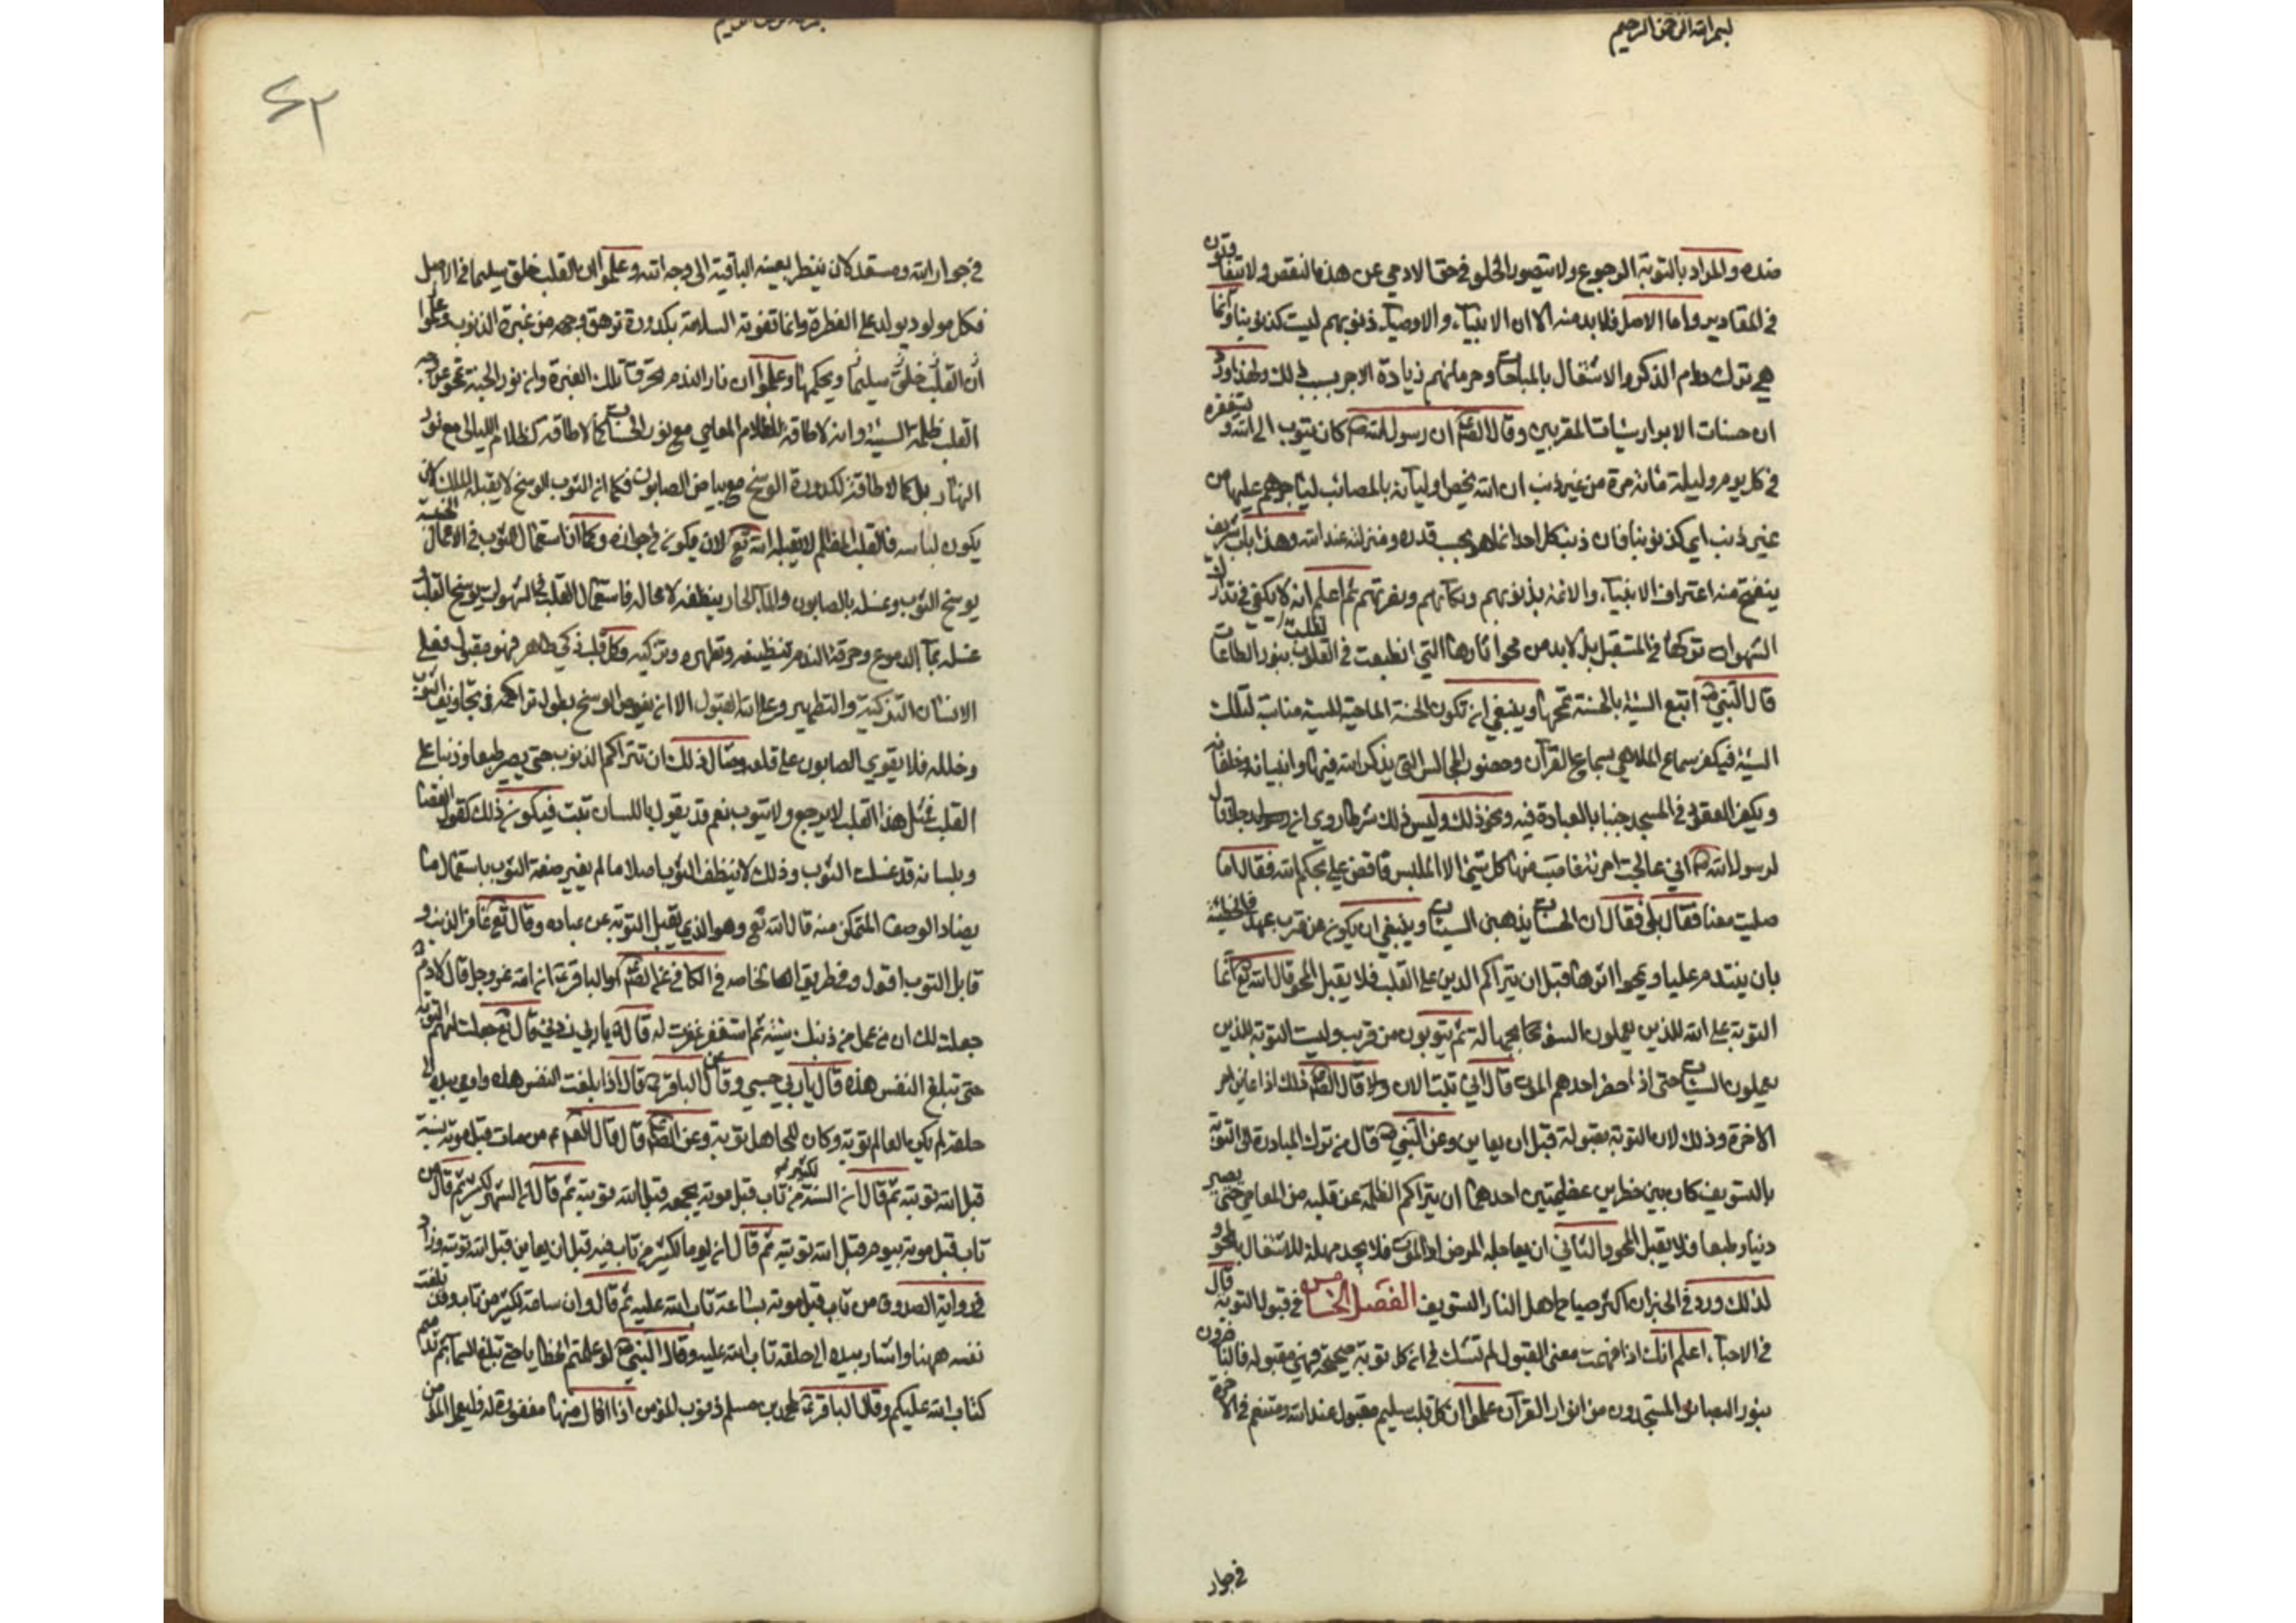 بسم الله الرحمن الرحيم
ضده والمراد بالتوبة الرجوع ولا يتصور الخلو في حق الادمي عن هذا النقص ولا يتفاوتون
في المقادير واما الاصل فلا بد منه الا ان الانبياء والاوصياء ذنوبهم ليست كذنوبنا وانما
هي ترك دوام الذكر والاشتغال بالمباحات وحرمانهم زيادة الاجر بسبب ذلك ولهذا ورد
ان حسنات الابرار سيئات المقربين وقال الصم ان رسول الله ص كان يتوب الى الله ويستغفره
في كل يوم وليلة مائة مرة من غير ذنب ان الله يخص اوليائه بالمصائب ليأجرهم عليها من
غير ذنب اي كذنوبنا فان ذنب كل احد انما هو بحسب قدره ومنزلته عند الله وهذا باب شريف
ينفتح منه اعتراف الانبياء والائمة بذنوبهم وبكائهم وتضرعهم ثم اعلم انه لا يكفي في تدارك
الشهوات تركها في المستقبل بل لا بد من محو اثارها التي انطبعت في القلب بنور الطاعات
قال النبي ص اتبع السيئة بالحسنة تمحها وينبغي ان تكون الحسنة الماحية للسيئة مناسبة لتلك
السيئة فيكفر سماع الملاهي بسماع القرآن وحضور المجالس التي يذكر الله فيها وانبيائه وخلفائه
ويكفر القعود في المسجد جنبا بالعبادة فيه ونحو ذلك وليس ذلك شرطا روي ان رجلا قال
لرسول الله ص اني عالجت امرئة فاصبت منها كل شيء الا المسيس فاقض علي بحكم الله فقال اما
صليت معنا فقال بلى فقال ان الحسنات يذهبن السيئات وينبغي ان يكون عن قرب عهد بالخطيئة
بان يتندم عليها ويمحو اثرها قبل ان يتراكم الرين على القلب فلا يقبل المحو قال الله تع انما
التوبة على الله للذين يعملون السوء بجهالة ثم يتوبون من قريب وليست التوبة للذين
يعملون السيئات حتى اذا حضر احدهم الموت قال اني تبت الان ولا قال الصم ذلك اذا عاين امر
الاخرة وذلك لان التوبة مقبولة قبل ان يعاين وعن النبي ص قال من ترك المبادرة الى التوبة
بالتسويف كان بين خطرين عظيمتين احدهما ان يتراكم الظلمة عن قلبه من المعاصي حتى يصير
دنيا وطبعا فلا يقبل المحو والثاني ان يعاجله المرض او الموت فلا يجد مهلة للاشتغال بالمحو
لذلك ورد في الخبر ان اكثر صياح اهل النار التسويف الفصل الخامس في قبول التوبة قال
في الاحياء اعلم انك اذا فهمت معنى القبول لم تشك في ان كل توبة صحيحة فهي مقبولة فالناظرون
بنور البصائر المستمدون من انوار القرآن علموا ان كل قلب سليم مقبول عند الله ومتنعم في الاخرة
في جوار
٤٢
في جوار الله ومستعد لان ينظر بعينه الباقية الى وجه الله وعلموا ان القلب خلق سليما في الاصل
فكل مولود يولد على الفطرة وانما تفوته السلامة بكدورة ترهق وجهه من غبرة الذنوب وعلموا
ان القلب خلق سليما ويحكمها وعلموا ان نار الندم تحرق تلك الغبرة وان نور الحسنة تمحو عن وجه
القلب ظلمة السيئة وانه لا طاقة لظلام المعاصي مع نور الحسنات كما لا طاقة لظلام الليالي مع نور
النهار بل كما لا طاقة لكدورة الوسخ مع بياض الصابون فكما ان الثوب الوسخ لا يقبله الملك لان
يكون لباسه فالقلب المظلم لا يقبله الله تع لان يكون في جواره وكما ان استعمال الثوب في الاعمال الخسيسة
يوسخ الثوب وغسله بالصابون والماء الحار ينظفه لا محالة فاستعمال القلب في الشهوات يوسخ القلب و
غسله بماء الدموع وحرقة الندم تنظيفه وتطهره وتزكيه وكل قلب زكي طاهر فهو مقبول فعلى
الانسان التزكية والتطهير وعلى الله القبول الا ان يغوص الوسخ بطول تراكمه في تجاويف الثوب
وخلله فلا يقوى الصابون على قلعه ومثال ذلك ان تتراكم الذنوب حتى يصير طبعا وذنبا على
القلب فمثل هذا القلب لا يرجع ولا يتوب نعم قد يقول باللسان تبت فيكون ذلك كقول القصار
وبلسانه قد غسلت الثوب وذلك لا ينظف الثوب اصلا ما لم يغير صفة الثوب باستعمال ما
يضاد الوصف المتمكن منه قال الله تع وهو الذي يقبل التوبة عن عباده وقال تع غافر الذنب و
قابل التوب اقول وفي طريق الخاصة في الكافي عن الصم او الباقر ع ان الله عز وجل قال لادم
جعلت لك ان من عمل من ذريتك سيئة ثم استغفر غفرت له قال يا رب زدني قال تع جعلت لهم التوبة
حتى تبلغ النفس هذه قال يا رب حسبي وعن الباقر ع قال اذا بلغت النفس هذه واومى بيده الى
حلقه لم يكن للعالم توبة وكان للجاهل توبة وعن الصم قال قال ص من تاب قبل موته بسنة
قبل الله توبته ثم قال ان السنة لكثيرة من تاب قبل موته بجمعة قبل الله توبته ثم قال ان الشهر لكثير ثم قال من
تاب قبل موته بيوم قبل الله توبته ثم قال ان يوما لكثير من تاب قبل ان يعاين قبل الله توبته وزاد
في رواية الصدوق من تاب قبل موته بساعة تاب الله عليه ثم قال وان ساعة لكثير من تاب وقد بلغت
نفسه ههنا واشار بيده الى حلقه تاب الله عليه وقال النبي ص لو عملتم الخطايا حتى تبلغ السماء ثم ندمتم
لتاب الله عليكم وقال الباقر ع لمحمد بن مسلم ذنوب المؤمن اذا تاب منها مغفورة له فليعمل المؤمن